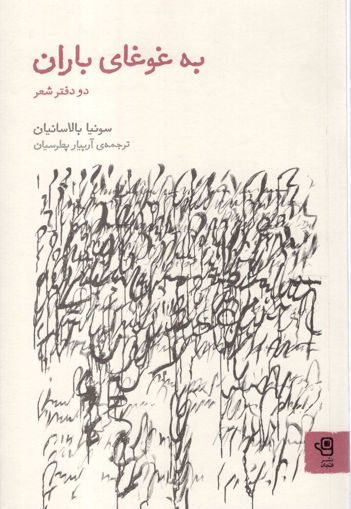 به غوغای باران
دو دفتر شعر
سونیا بالاسانیان
ترجمه‌ی آربیار پطرسیان
نشر
فنجان